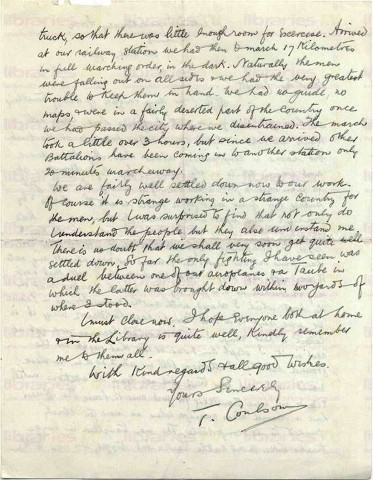 truck, so that there was little enough room for exercise. Arrived
at our railway stations we had then to march 17 Kilometres
in full marching order, in the dark. Naturally the men
were falling out on all sides & we had the very greatest
trouble to keep them in hand. We had no guide, no
maps, & were in a fairly deserted part of the country once
we had passed the city where we disentrained. The march
took a little over 3 hours, but since we arrived other
Battalions have been coming in to another station only
20 minutes march away.
We are fairly well settled down now to our work.
Of course it is strange working in a strange country for
the men, but I was surprised to find that not only do
I understand the people, but they also understand me.
There is no doubt that we shall very soon get quite well
settled down. So far the only fighting I have seen was
a duel between one of our aeroplanes & a Taube in
which the latter was brought down within 200 yards of
where I stood.
I must close now. I hope everyone both at home
& in the Library is quite well, Kindly remember
me to them all.
With Kind regards & all good wishes.
Yours Sincerely
T. Coulson